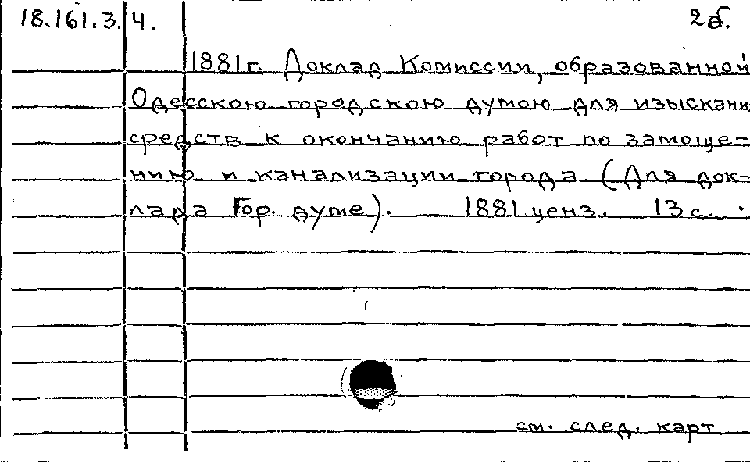 18.161.3.4. 2б.
1881г. Доклад Комиссии, образованной
Одесскою городскою думою для изыскани
средств к окончанию работ по замоще-
нию и канализации города (Для док-
лада Гор. думе). 1881. ценз. 13 с.
см. след. карт